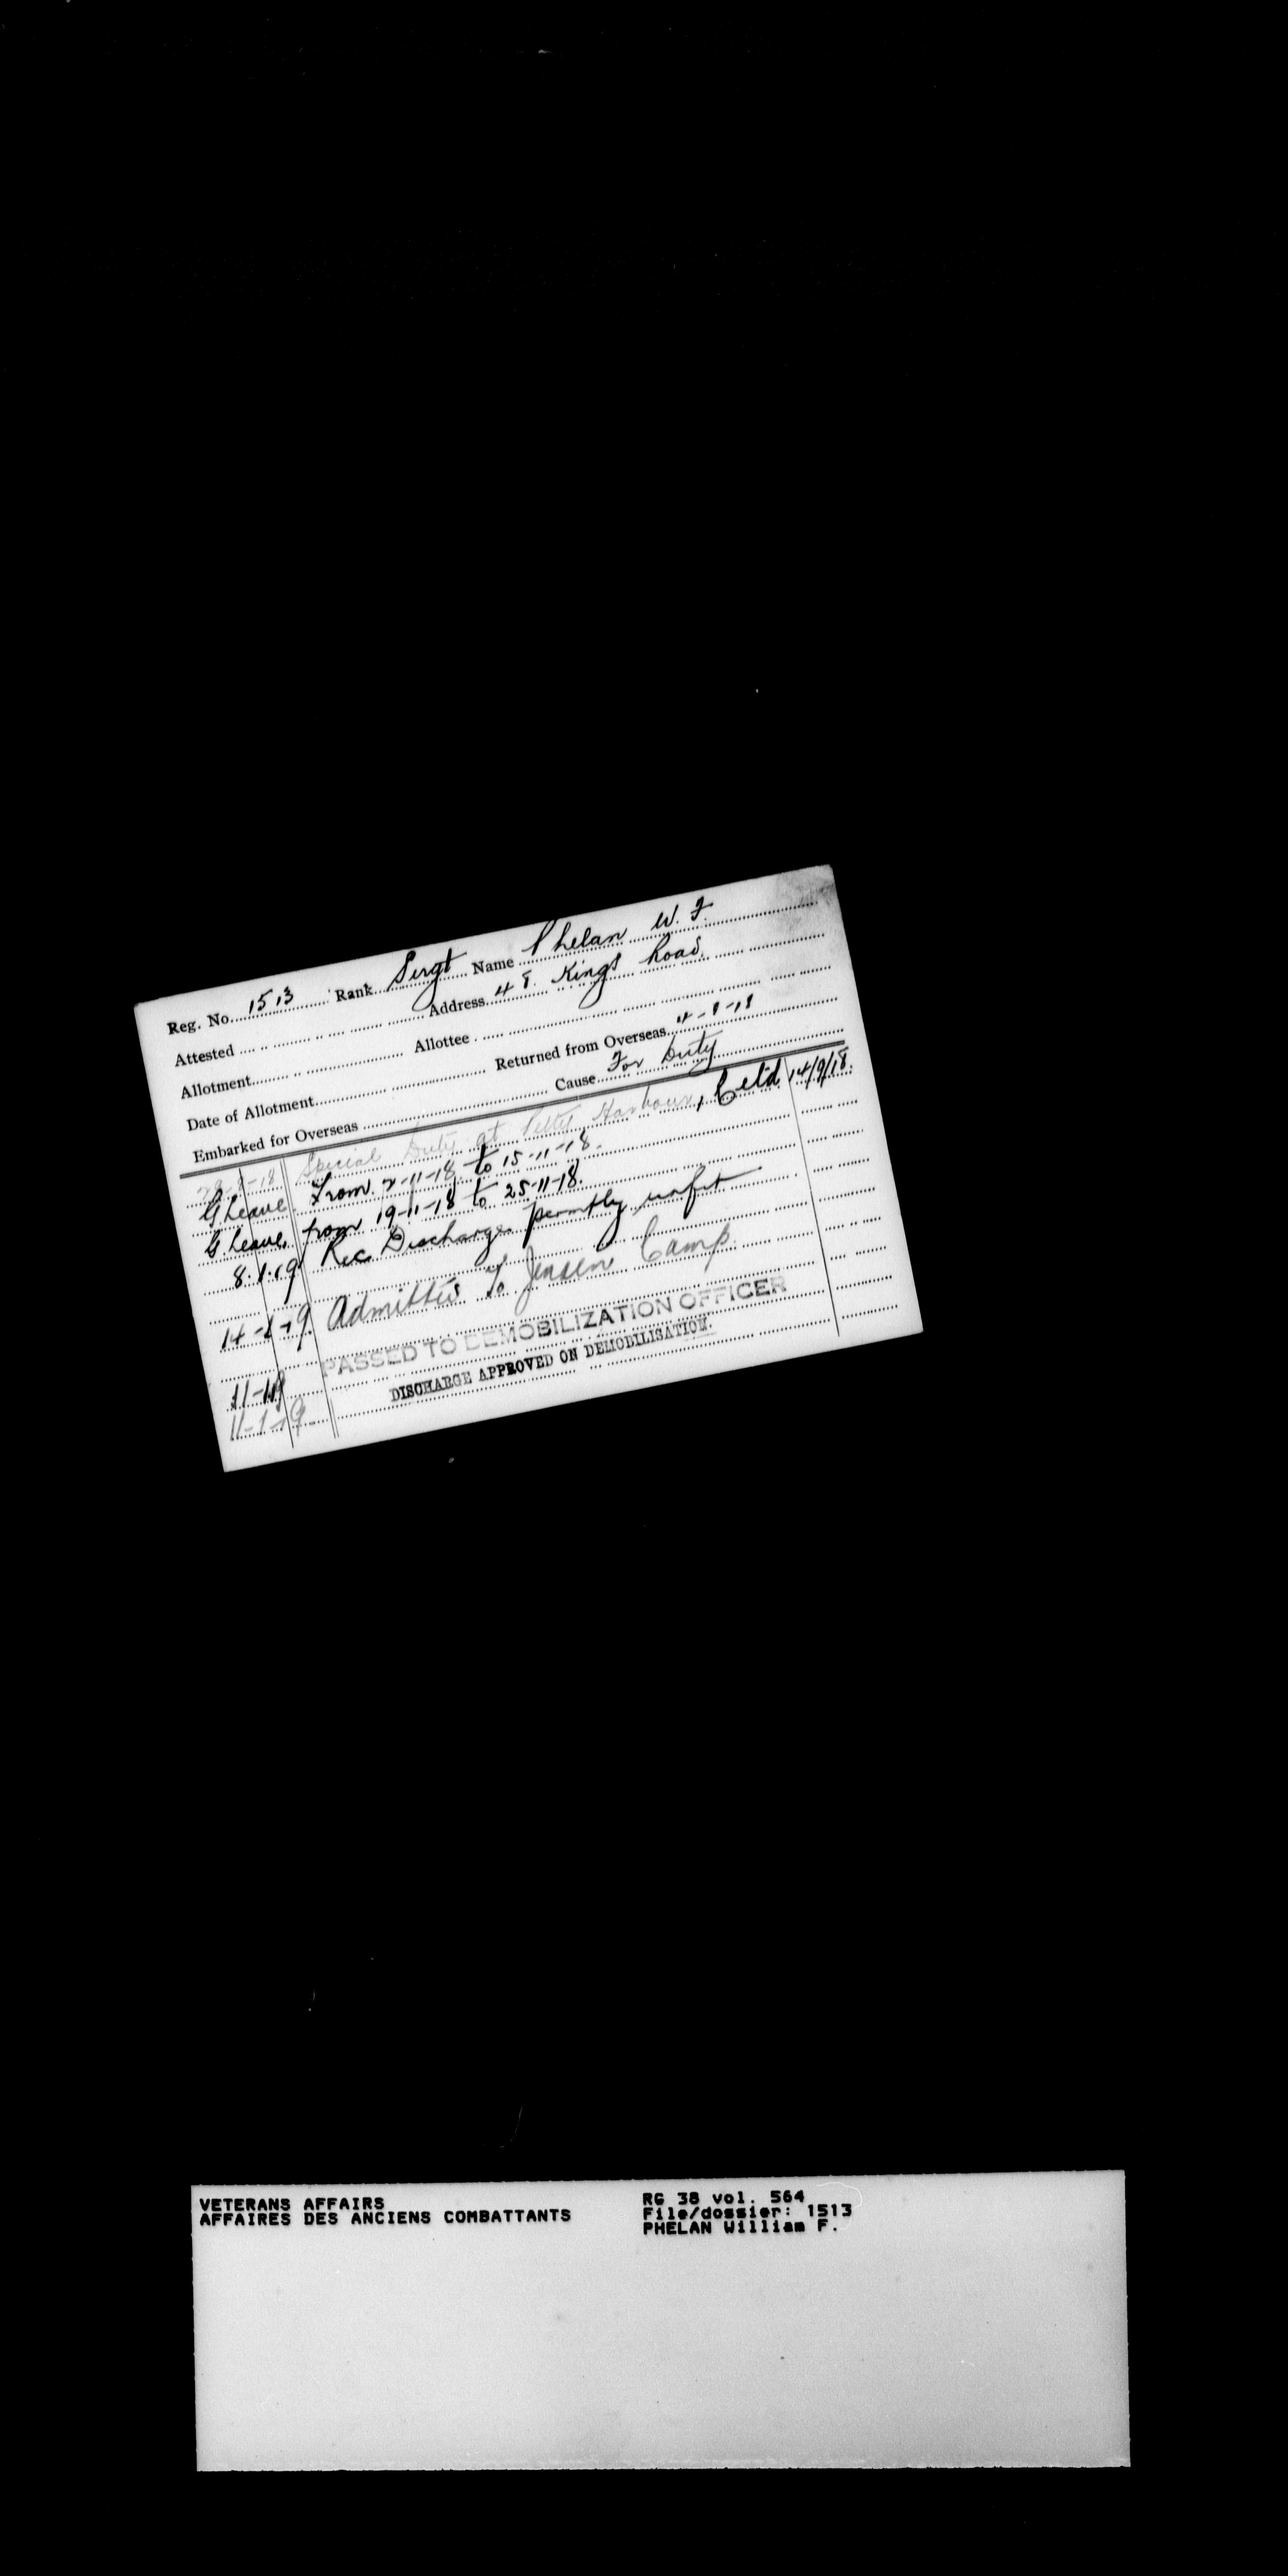 Reg. No. 1513 Rank Sergt Name Phelan W. F.
Attested Address 48 Kings Road
Allotment Allottee
Date of Allotment Returned from Overseas 4-8-18
Embarked for Overseas Cause For Duty
29-8-18 Special Duty at Petty Harbour, Celd 14/9/18.
G Leave From 2-11-18 to 15-11-18.
G Leave from 19-11-18 to 25-11-18.
8.1.19 Rec Discharge permtly unfit
14-1-19 Admitted To Jensen Camp.
PASSED TO DEMOBILIZATION OFFICER
11-1-19 DISCHARGE APPROVED ON DEMOBILISATION.
VETERANS AFFAIRS
AFFAIRES DES ANCIENS COMBATTANTS
RG 38 vol. 564
File/dossier: 1513
PHELAN William F.